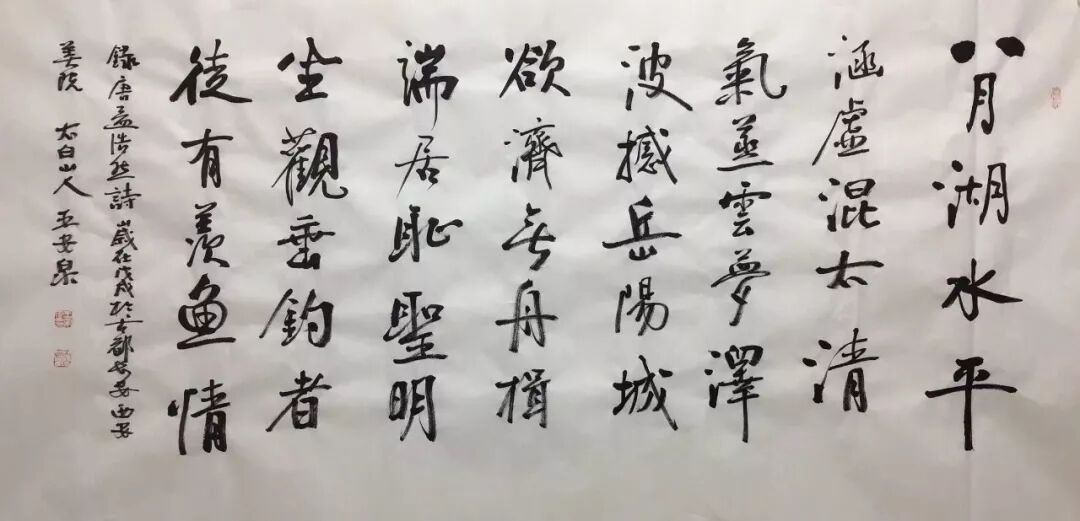 八月湖水平
涵虛混太清
氣蒸雲夢澤
波撼岳陽城
欲濟無舟楫
端居恥聖明
坐觀垂釣者
徒有羨魚情
錄唐孟浩然詩 歲在戊戌於古都長安西安
美院 太白山人 王安泉